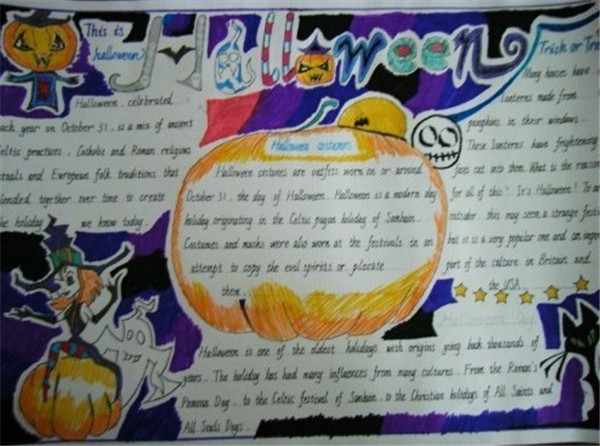 This is
halloween?
Halloween
Trick or Tre
Halloween celebrated
each year on October 31. is a mix of ancient
Celtic practices. Catholic and Roman religious
rituals and European folk traditions that
blended together over time to create
the holiday we know today.
Halloween costumes
Halloween costumes are outfits worn on or around
October 31. the day of Halloween. Halloween is a modern day
holiday originating in the Celtic pagan holiday of Samhain.
Costumes and masks were also worn at the festivals in an
attempt to copy the evil spirits or placate
them.
Many houses have
lanterns made from
pumpkins in their windows.
These lanterns have frightening
faces cut into them. What is the reason
for all of this? It's Halloween! To an
outsider. this may seem a strange festi
but it is a very popular one and an impor
part of the culture in Britain and
the USA.
Halloween Day
Halloween is one of the oldest holidays with origins going back thousands of
years. The holiday has had many influences from many cultures. From the Roman's
Pomona Day. to the Celtic festival of Samhain. to the Christian holidays of All Saints and
All Souls Days.